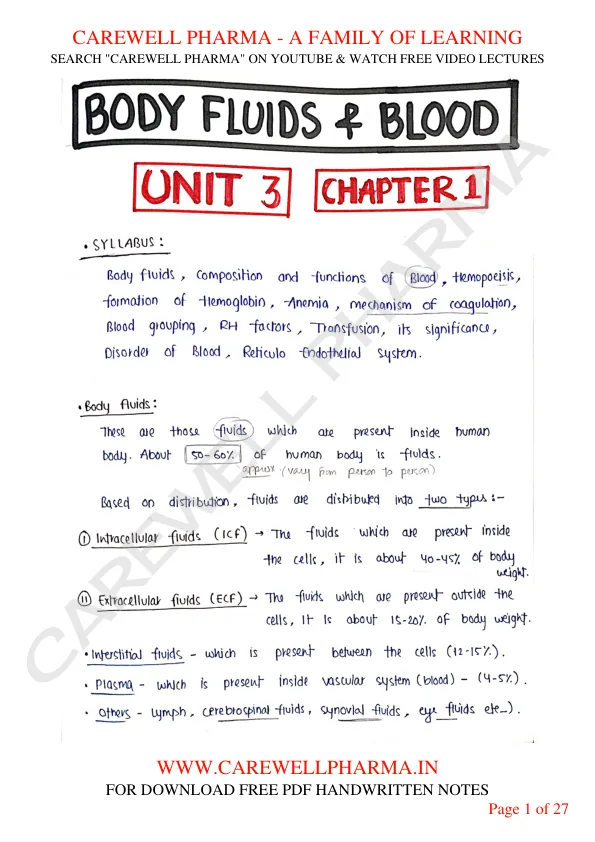 CAREWELL PHARMA - A FAMILY OF LEARNING
SEARCH "CAREWELL PHARMA" ON YOUTUBE & WATCH FREE VIDEO LECTURES
BODY FLUIDS & BLOOD
UNIT 3 CHAPTER 1
• SYLLABUS :
Body fluids , Composition and functions of Blood , Hemopoeisis,
formation of Hemoglobin , Anemia , mechanism of coagulation,
Blood grouping , RH factors , Transfusion, its significance,
Disorder of Blood , Reticulo Endothelial System.
• Body fluids :
These are those fluids which are present inside human
body. About 50-60% of human body is fluids.
approx (vary from person to person)
Based on distribution, fluids are distributed into two types :-
(i) Intracellular fluids (ICF) → The fluids which are present inside
the cells, it is about 40-45% of body
weight.
(ii) Extracellular fluids (ECF) → The fluids which are present outside the
cells, It is about 15-20% of body weight.
• Interstitial fluids - which is present between the cells (12-15%).
• Plasma - which is present inside vascular system (blood) - (4-5%).
• Others - Lymph, Cerebrospinal fluids, Synovial fluids, eye fluids etc..).
CAREWELL PHARMA
WWW.CAREWELLPHARMA.IN
FOR DOWNLOAD FREE PDF HANDWRITTEN NOTES
Page 1 of 27